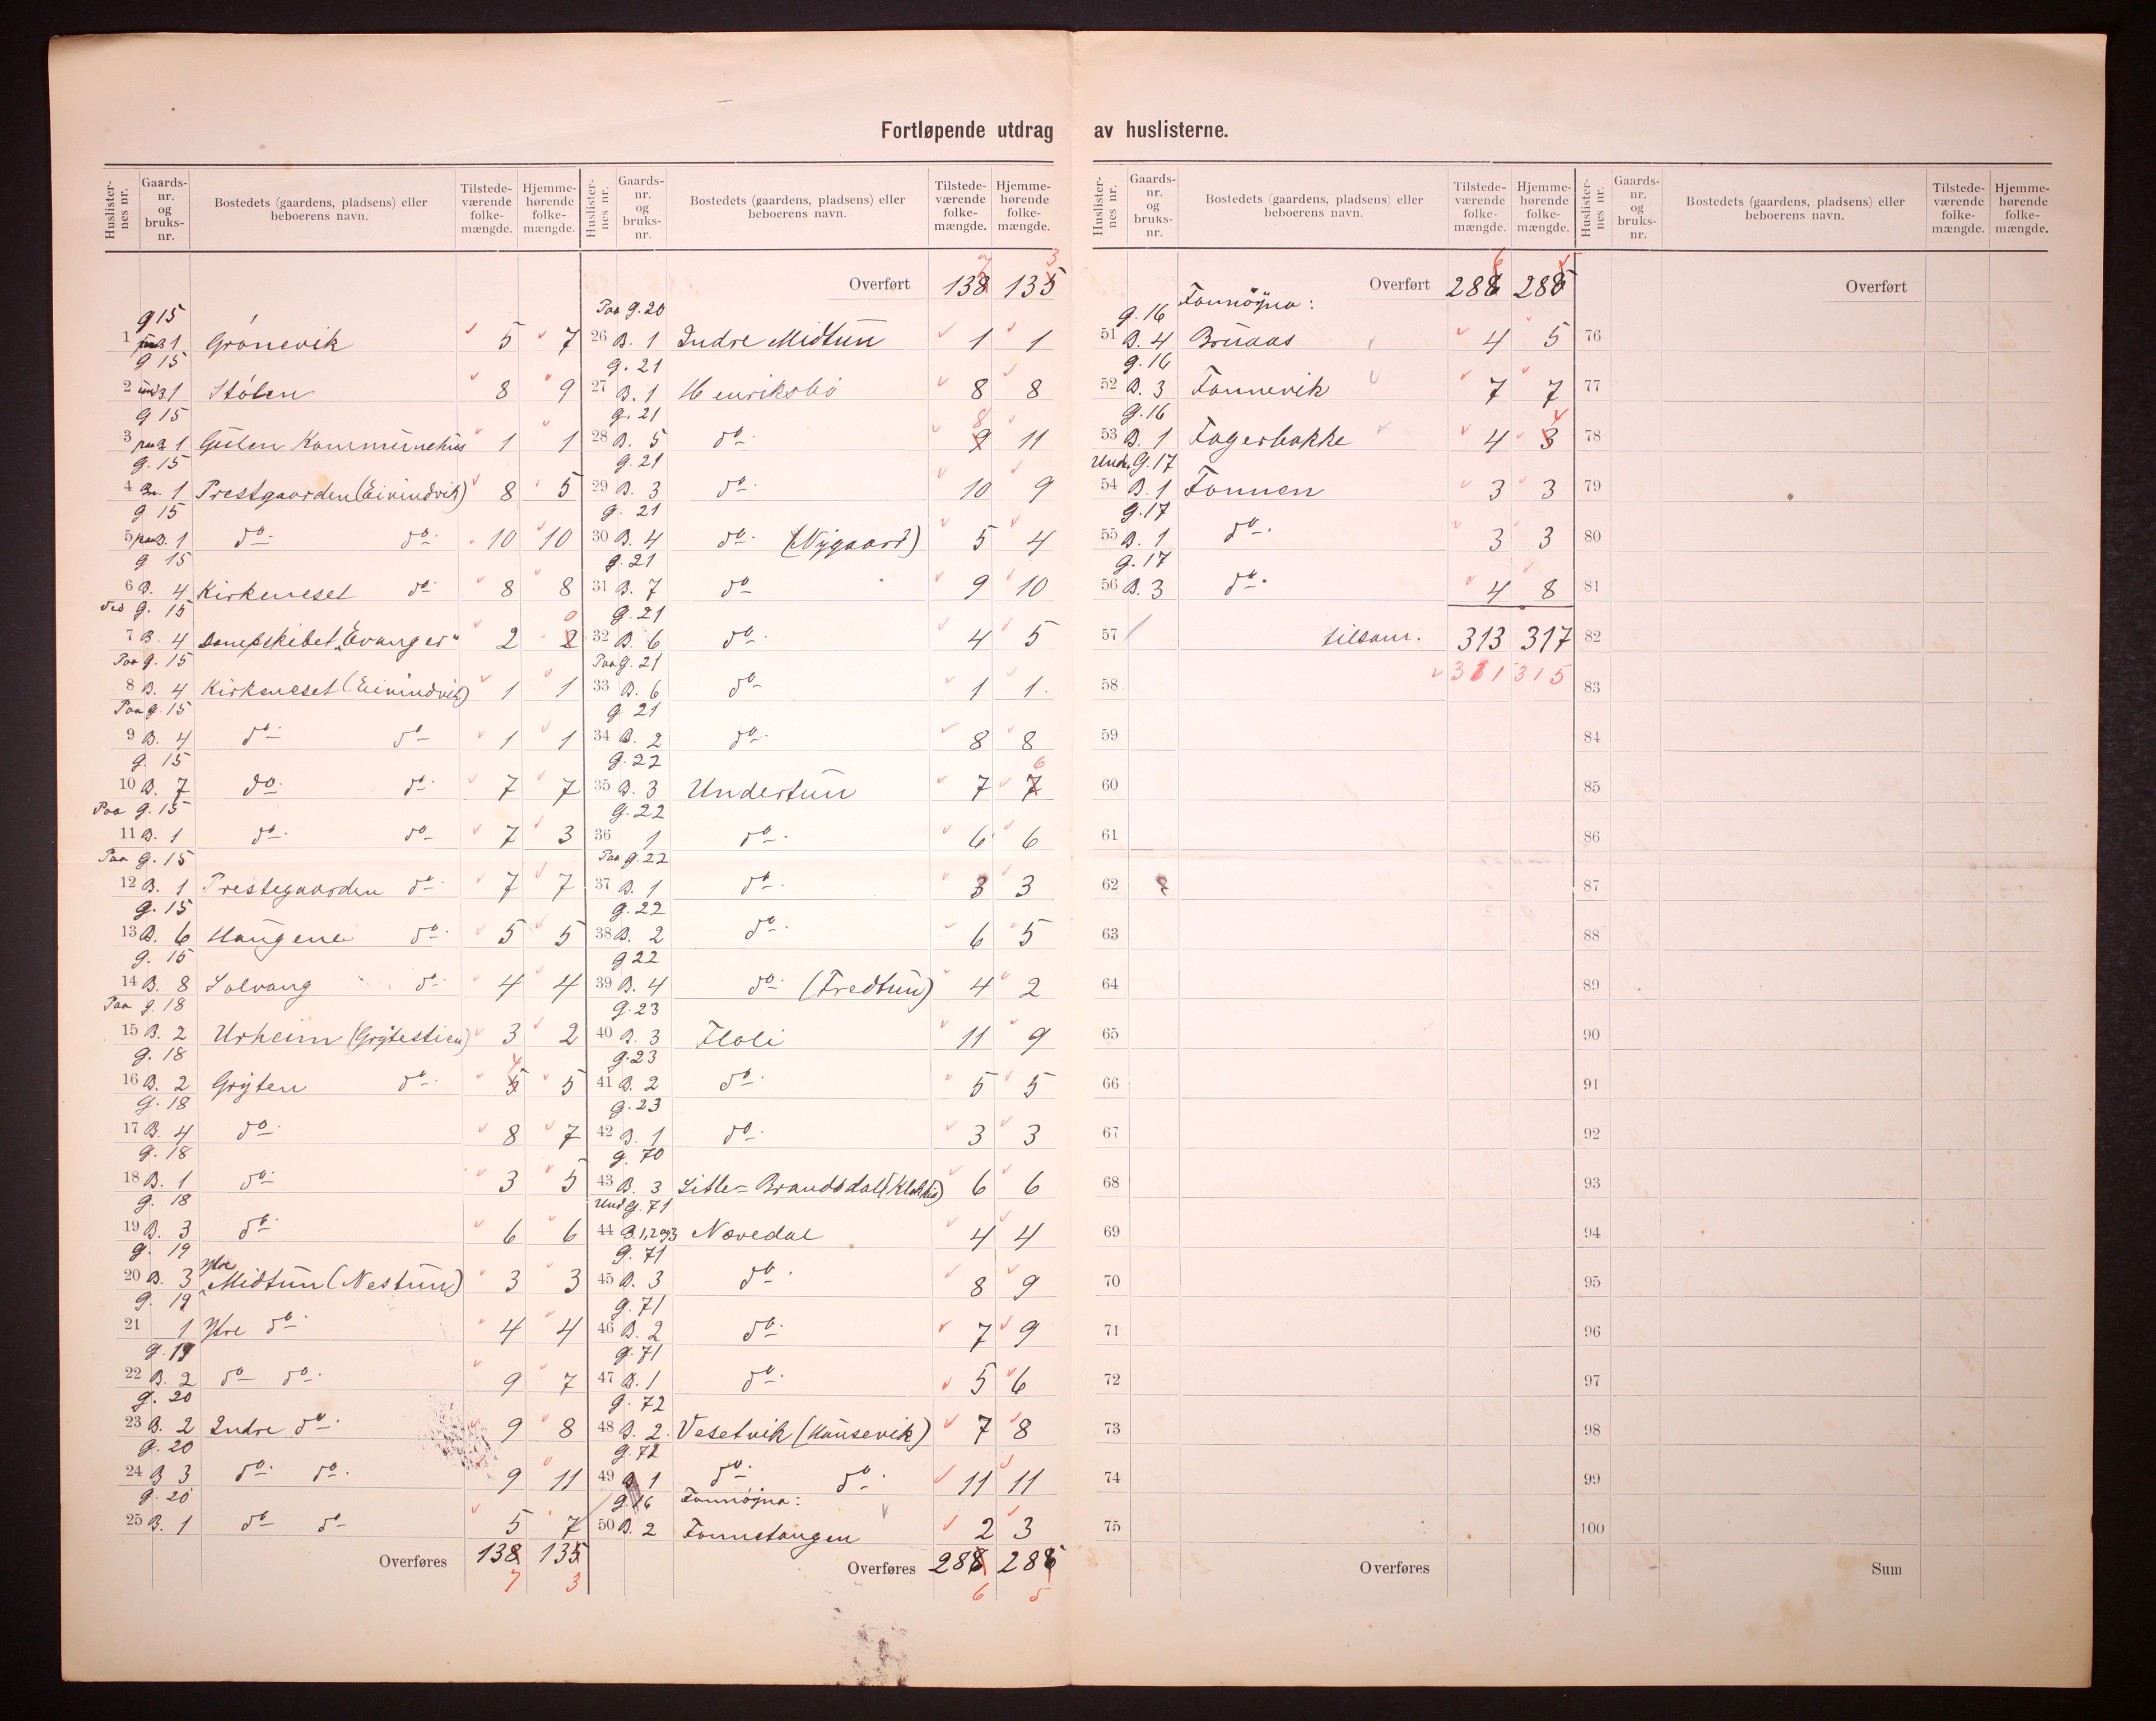 Fortløpende utdrag av huslisterne.
Huslisternes nr. Gaards-nr. og bruks-nr. Bostedets (gaardens, pladsens) eller beboerens navn. Tilstedeværende folkemængde. Hjemmehørende folkemængde.
g 15
1 B 1 Grönevik 5 7
g 15
2 und B 1 Stölen 8 9
g 15
3 paa B 1 Gulen Kommunehus 1 1
g. 15
4 Bn. 1 Prestgaarden (Eivindvik) 8 5
g. 15
5 paa B. 1 do. do. 10 10
g 15
6 B. 4 Kirkeneset do. 8 8
Ved g. 15
7 B. 4 Dampskibet „Evanger" 2 2 0
Paa g. 15
8 B. 4 Kirkeneset (Eivindvik) 1 1
Paa g. 15
9 B. 4 do. do. 1 1
g. 15
10 B. 7 do. do. 7 7
Paa g. 15
11 B. 1 do. do. 7 3
Paa g. 15
12 B. 1 Prestegaarden do. 7 7
g. 15
13 B. 6 Haugene do. 5 5
g. 15
14 B. 8 Solvang do. 4 4
Paa g. 18
15 B. 2 Urheim (Grytestien) 3 2
g. 18
16 B. 2 Gryten do. 5 4 5
g. 18
17 B. 4 do. 8 7
g. 18
18 B. 1 do. 3 5
g. 18
19 B. 3 do. 6 6
g. 19
20 B. 3 Ytre Midtun (Nestun) 3 3
g. 19
21 1 Ytre do. 4 4
g. 19
22 B. 2 do. do. 9 7
g. 20
23 B. 2 Indre do. 9 8
g. 20
24 B 3 do. do. 9 11
g. 20
25 B. 1 do. do. 5 7
Overføres 138 135
7 3
Huslisternes nr. Gaards-nr. og bruks-nr. Bostedets (gaardens, pladsens) eller beboerens navn. Tilstedeværende folkemængde. Hjemmehørende folkemængde.
7 3
Overført 138 135
Paa g. 20
26 B. 1 Indre Midtun 1 1
g. 21
27 B. 1 Henriksbö 8 8
g. 21
28 B. 5 do. 9 8 11
g. 21
29 B. 3 do. 10 9
g. 21
30 B. 4 do. (Nygaard) 5 4
g. 21
31 B. 7 do 9 10
g. 21
32 B. 6 do. 4 5
Paa g. 21
33 B. 6 do 1 1.
g 21
34 B. 2 do. 8 8
g. 22
35 B. 3 Undertun 7 7 6
g. 22
36 1 do. 6 6
Paa g. 22
37 B. 1 do. 3 3
g. 22
38 B. 2 do. 6 5
g 22
39 B. 4 do. (Fredtun) 4 2
g. 23
40 B. 3 Floli 11 9
g. 23
41 B. 2 do. 5 5
g. 23
42 B. 1 do. 3 3
g. 70
43 B. 3 Litle=Brandsdal 6 6
Und g. 71
44 B. 1, 2 og 3 Novedal 4 4
g. 71
45 B. 3 do. 8 9
g. 71
46 B. 2 do. 7 9
g. 71
47 B. 1 do. 5 6
g. 72
48 B. 2. Vesetvik (Hausevik) 7 8
g. 72
49 B 1 do. do. 11 11
g. 16 Fonnöyna:
50 B. 2 Fonnetangen 2 3
Overføres 288 286
6 5
Huslisternes nr. Gaards-nr. og bruks-nr. Bostedets (gaardens, pladsens) eller beboerens navn. Tilstedeværende folkemængde. Hjemmehørende folkemængde.
Overført 288 286
g. 16 Fonnöyna:
51 B. 4 Bruaas 4 5
g. 16
52 B. 3 Fonnevik 7 7
g. 16
53 B. 1 Fagerbakke 4 3 4
Und. g. 17
54 B. 1 Fonnen 3 3
g. 17
55 B. 1 do. 3 3
g. 17
56 B. 3 do. 4 8
57 tilsam. 313 317
58 311 315
59
60
61
62
63
64
65
66
67
68
69
70
71
72
73
74
75
Overføres
Huslisternes nr. Gaards-nr. og bruks-nr. Bostedets (gaardens, pladsens) eller beboerens navn. Tilstedeværende folkemængde. Hjemmehørende folkemængde.
Overført
76
77
78
79
80
81
82
83
84
85
86
87
88
89
90
91
92
93
94
95
96
97
98
99
100
Sum